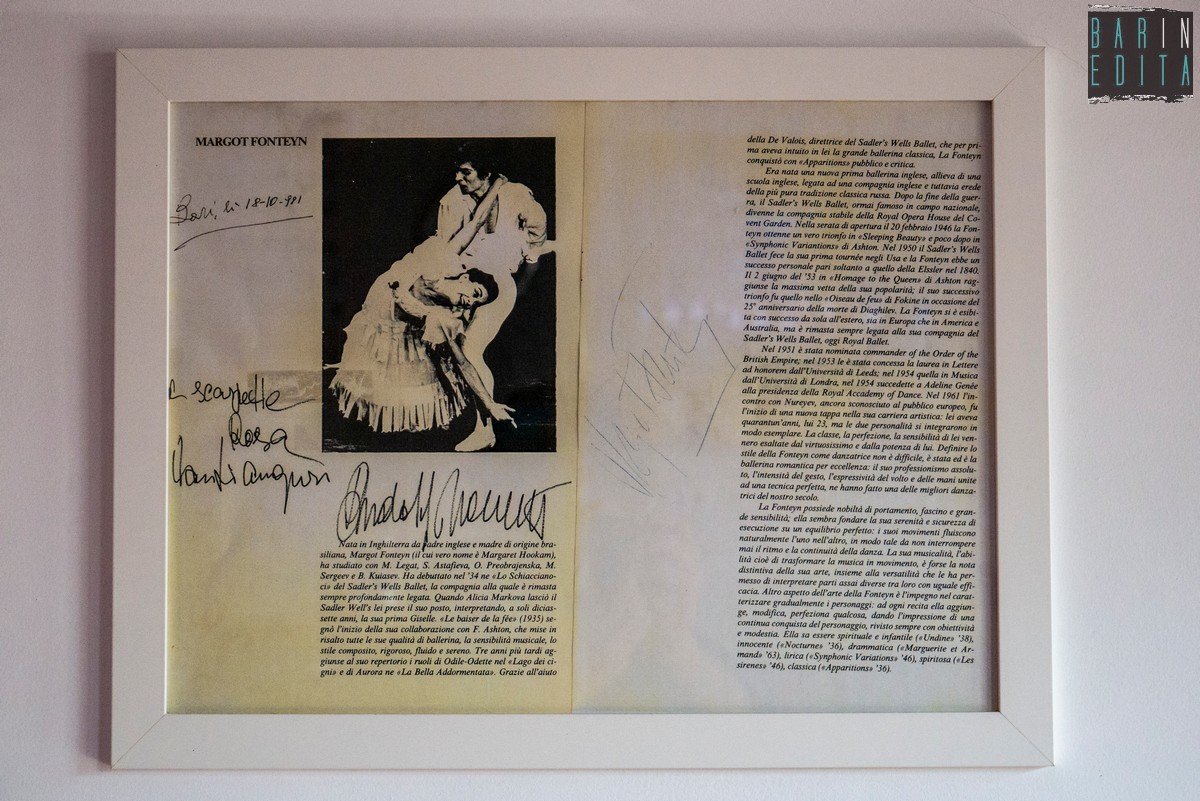 BARIN
EDITA
MARGOT FONTEYN
Bari, li 18-10-981
scarpette
Rosa
Nata in Inghilterra da padre inglese e madre di origine bra-
siliana, Margot Fonteyn (il cui vero nome è Margaret Hookam),
ha studiato con M. Legat, S. Astafieva, O. Preobrajenska, M.
Sergeev e B. Kuiasev. Ha debuttato nel '34 ne «Lo Schiacciano-
ci» del Sadler's Wells Ballet, la compagnia alla quale è rimasta
sempre profondamente legata. Quando Alicia Markova lasciò il
Sadler Well's lei prese il suo posto, interpretando, a soli dicias-
sette anni, la sua prima Giselle. «Le baiser de la fée» (1935) se-
gnò l'inizio della sua collaborazione con F. Ashton, che mise in
risalto tutte le sue qualità di ballerina, la sensibilità musicale, lo
stile composito, rigoroso, fluido e sereno. Tre anni più tardi ag-
giunse al suo repertorio i ruoli di Odile-Odette nel «Lago dei ci-
gni» e di Aurora ne «La Bella Addormentata». Grazie all'aiuto
della De Valois, direttrice del Sadler's Wells Ballet, che per pri-
ma aveva intuito in lei la grande ballerina classica, La Fonteyn
conquistò con «Apparitions» pubblico e critica.
Era nata una nuova prima ballerina inglese, allieva di una
scuola inglese, legata ad una compagnia inglese e tuttavia erede
della più pura tradizione classica russa. Dopo la fine della guer-
ra, il Sadler's Wells Ballet, ormai famoso in campo nazionale,
divenne la compagnia stabile della Royal Opera House del Co-
vent Garden. Nella serata di apertura il 20 febbraio 1946 la Fon-
teyn ottenne un vero trionfo in «Sleeping Beauty» e poco dopo in
«Synphonic Variantions» di Ashton. Nel 1950 il Sadler's Wells
Ballet fece la sua prima tournée negli Usa e la Fonteyn ebbe un
successo personale pari soltanto a quello della Elssler nel 1840.
Il 2 giugno del '53 in «Homage to the Queen» di Ashton rag-
giunse la massima vetta della sua popolarità; il suo successivo
trionfo fu quello nello «Oiseau de feu» di Fokine in occasione del
25° anniversario della morte di Diaghilev. La Fonteyn si è esibi-
ta con successo da sola all'estero, sia in Europa che in America e
Australia, ma è rimasta sempre legata alla sua compagnia del
Sadler's Wells Ballet, oggi Royal Ballet.
Nel 1951 è stata nominata commander of the Order of the
British Empire; nel 1953 le è stata concessa la laurea in Lettere
ad honorem dall'Università di Leeds; nel 1954 quella in Musica
dall'Università di Londra, nel 1954 succedette a Adeline Genée
alla presidenza della Royal Accademy of Dance. Nel 1961 l'in-
contro con Nureyev, ancora sconosciuto al pubblico europeo, fu
l'inizio di una nuova tappa nella sua carriera artistica: lei aveva
quarantun'anni, lui 23, ma le due personalità si integrarono in
modo esemplare. La classe, la perfezione, la sensibilità di lei ven-
nero esaltate dal virtuosissimo e dalla potenza di lui. Definire lo
stile della Fonteyn come danzatrice non è difficile, è stata ed è la
ballerina romantica per eccellenza: il suo professionismo assolu-
to, l'intensità del gesto, l'espressività del volto e delle mani unite
ad una tecnica perfetta, ne hanno fatto una delle migliori danza-
trici del nostro secolo.
La Fonteyn possiede nobiltà di portamento, fascino e gran-
de sensibilità; ella sembra fondare la sua serenità e sicurezza di
esecuzione su un equilibrio perfetto: i suoi movimenti fluiscono
naturalmente l'uno nell'altro, in modo tale da non interrompere
mai il ritmo e la continuità della danza. La sua musicalità, l'abi-
lità cioè di trasformare la musica in movimento, è forse la nota
distintiva della sua arte, insieme alla versatilità che le ha per-
messo di interpretare parti assai diverse tra loro con uguale effi-
cacia. Altro aspetto dell'arte della Fonteyn è l'impegno nel carat-
terizzare gradualmente i personaggi: ad ogni recita ella aggiun-
ge, modifica, perfeziona qualcosa, dando l'impressione di una
continua conquista del personaggio, rivisto sempre con obiettività
e modestia. Ella sa essere spirituale e infantile («Undine» '38),
innocente («Nocturne» '36), drammatica («Marguerite et Ar-
mand» '63), lirica («Synphonic Variations» '46), spiritosa («Les
sirenes» '46), classica («Apparitions» '36).